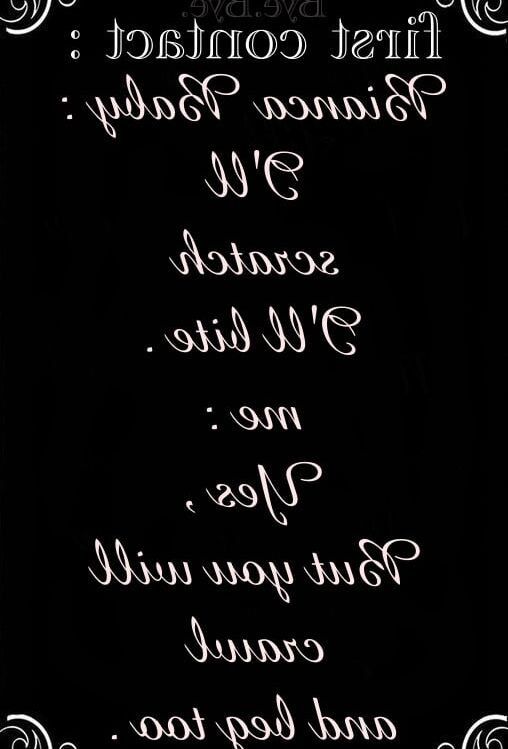 Bye.Bye.
first contact :
Bianca Baby :
I'll
scratch
I'll bite .
me :
Yes ,
But you will
crawl
and beg too .